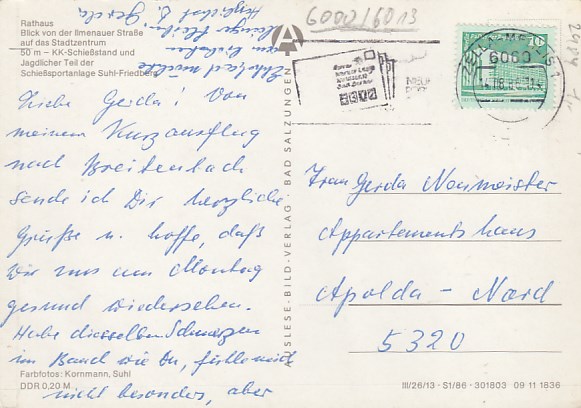 Rathaus
Blick von der Ilmenauer Straße
auf das Stadtzentrum
50 m – KK-Schießstand und
Jagdlicher Teil der
Schießsportanlage Suhl-Friedberg
Liebe Gerda! Von
meinem Kurzausflug
nach Breitenbach
sende ich Dir herzliche
Grüße u. hoffe, daß
wir uns am Montag
gesund wiedersehen.
Habe dieselben Schmerzen
im Bauch wie Du, fühle mich
nicht besonders, aber
Herzlichst D. Gerda
Farbfotos: Kornmann, Suhl
DDR 0,20 M
AUSLESE-BILD-VERLAG · BAD SALZUNGEN
6000/6013
ZELLA-MEHLIS 1
6060
10
Frau Gerda Neumeister
Appartementshaus
Apolda – Nord
5320
III/26/13 · S1/86 · 301803 09 11 1836